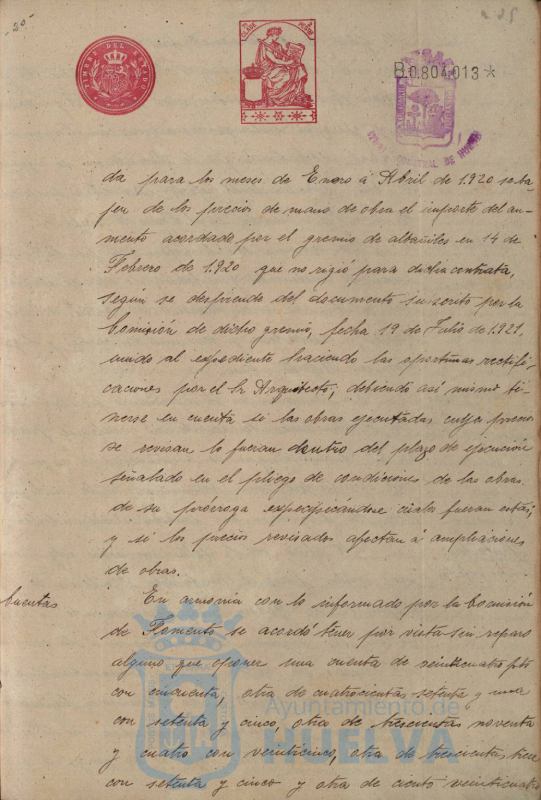 -20-
TIMBRE DEL ESTADO
B.0.804.013*
da para los meses de Enero á Abril de 1.920 se ba-
jen de los precios de mano de obra el importe del au-
mento acordado por el gremio de albañiles en 14 de
Febrero de 1.920 que no rigió para dicha contrata,
según se desprende del documento suscrito por la
Comisión de dicho gremio, fecha 19 de Julio de 1.921,
unido al expediente haciendo las oportunas rectifi-
caciones por el Sr Arquitecto; debiendo así mismo te-
nerse en cuenta si las obras ejecutadas cuyos precios
se revisan lo fueran dentro del plazo de ejecución
señalado en el pliego de condiciones de las obras
de su prórroga especificándose cuales fueran estas;
y si los precios revisados afectan á ampliaciones
de obras.
Cuentas
En armonía con lo informado por la Comisión
de Fomento se acordó tener por vista sin reparo
alguno que oponer una cuenta de veinticuatro pts
con cincuenta, otra de cuatrocientas setenta y una
con setenta y cinco, otra de trescientas noventa
y cuatro con veinticinco, otra de trescientas trece
con setenta y cinco y otra de ciento veinticuatro
Ayuntamiento de
HUELVA